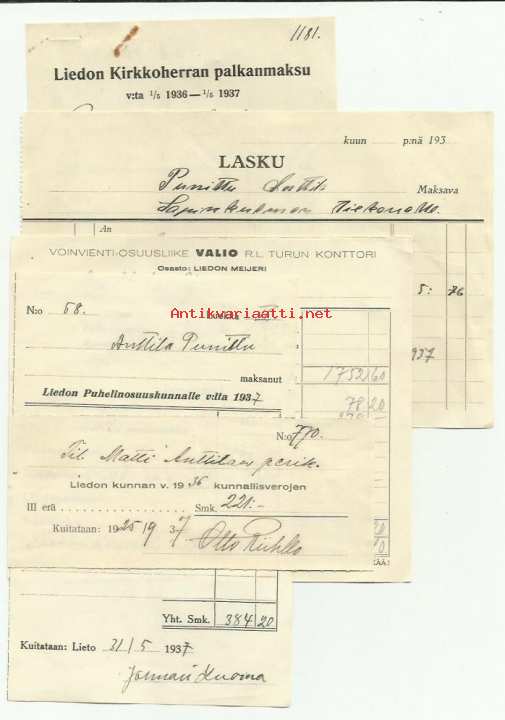 1181.
Liedon Kirkkoherran palkanmaksu
v:ta 1/5 1936 — 1/5 1937
kuun p:nä 193
LASKU
Punittu
Maksava
An
5: 76
937
VOINVIENTI-OSUUSLIIKE VALIO R.L. TURUN KONTTORI
Osasto: LIEDON MEIJERI
Antikvariaatti.net
N:o 68.
Anttila Punittu
maksanut
1752 60
Liedon Puhelinosuuskunnalle v:lta 1937
78 20
N:o 770.
Til. Matti Anttilan perik.
Liedon kunnan v. 1936 kunnallisverojen
III erä Smk. 221:–
Kuitataan: 19 25/9 37
Otto
Yht. Smk. 384 20
Kuitataan: Lieto 31/5 1937